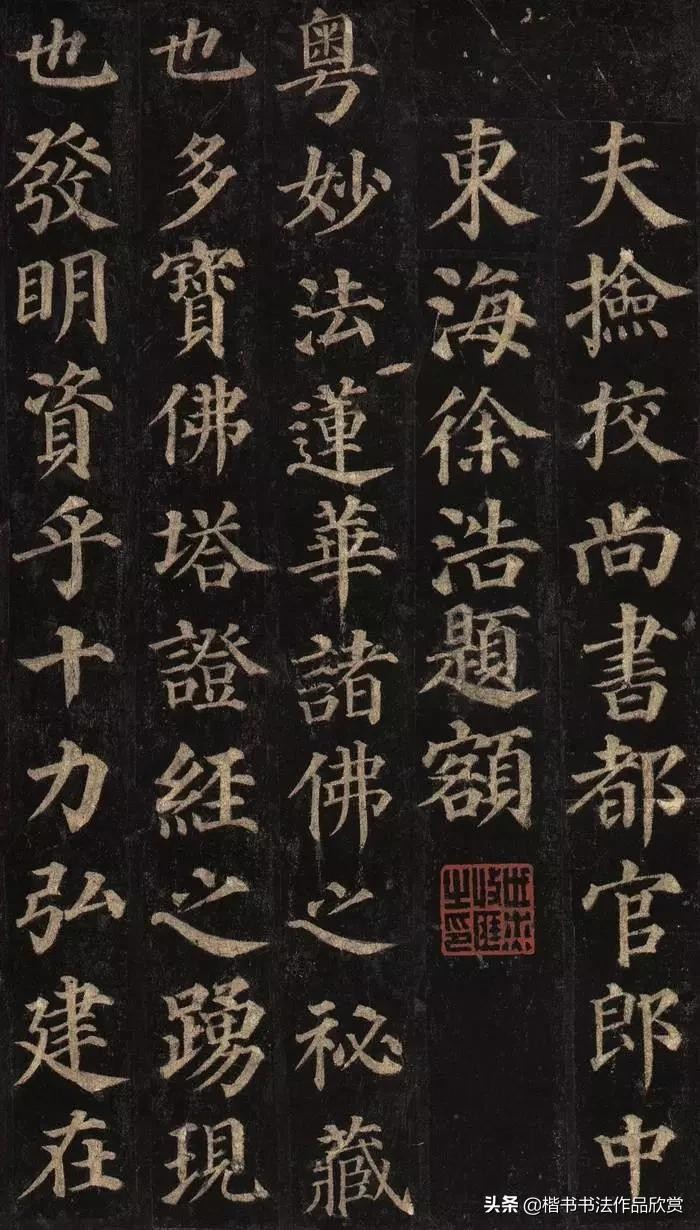 夫撿挍尚書都官郎中
東海徐浩題額
粤妙法蓮華諸佛之祕藏
也多寳佛塔證経之踴現
也發明資乎十力弘建在
头条 @楷书书法作品欣赏